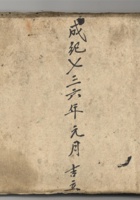 成紀七三六年元月吉立